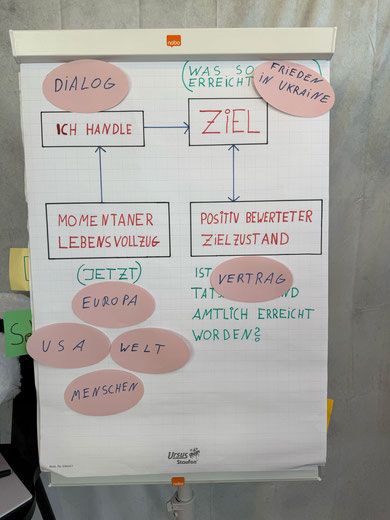 nobo
DIALOG
(WAS SO
ERREICHT
FRIEDEN
IN UKRAINE
ICH HANDLE
ZIEL
MOMENTANER
LEBENSVOLLZUG
POSITIV BEWERTETER
ZIELZUSTAND
(JETZT)
EUROPA
USA
WELT
MENSCHEN
IST
VERTRAG
AMTLICH ERREICHT
WORDEN?
URSUS
Staufen
nobo